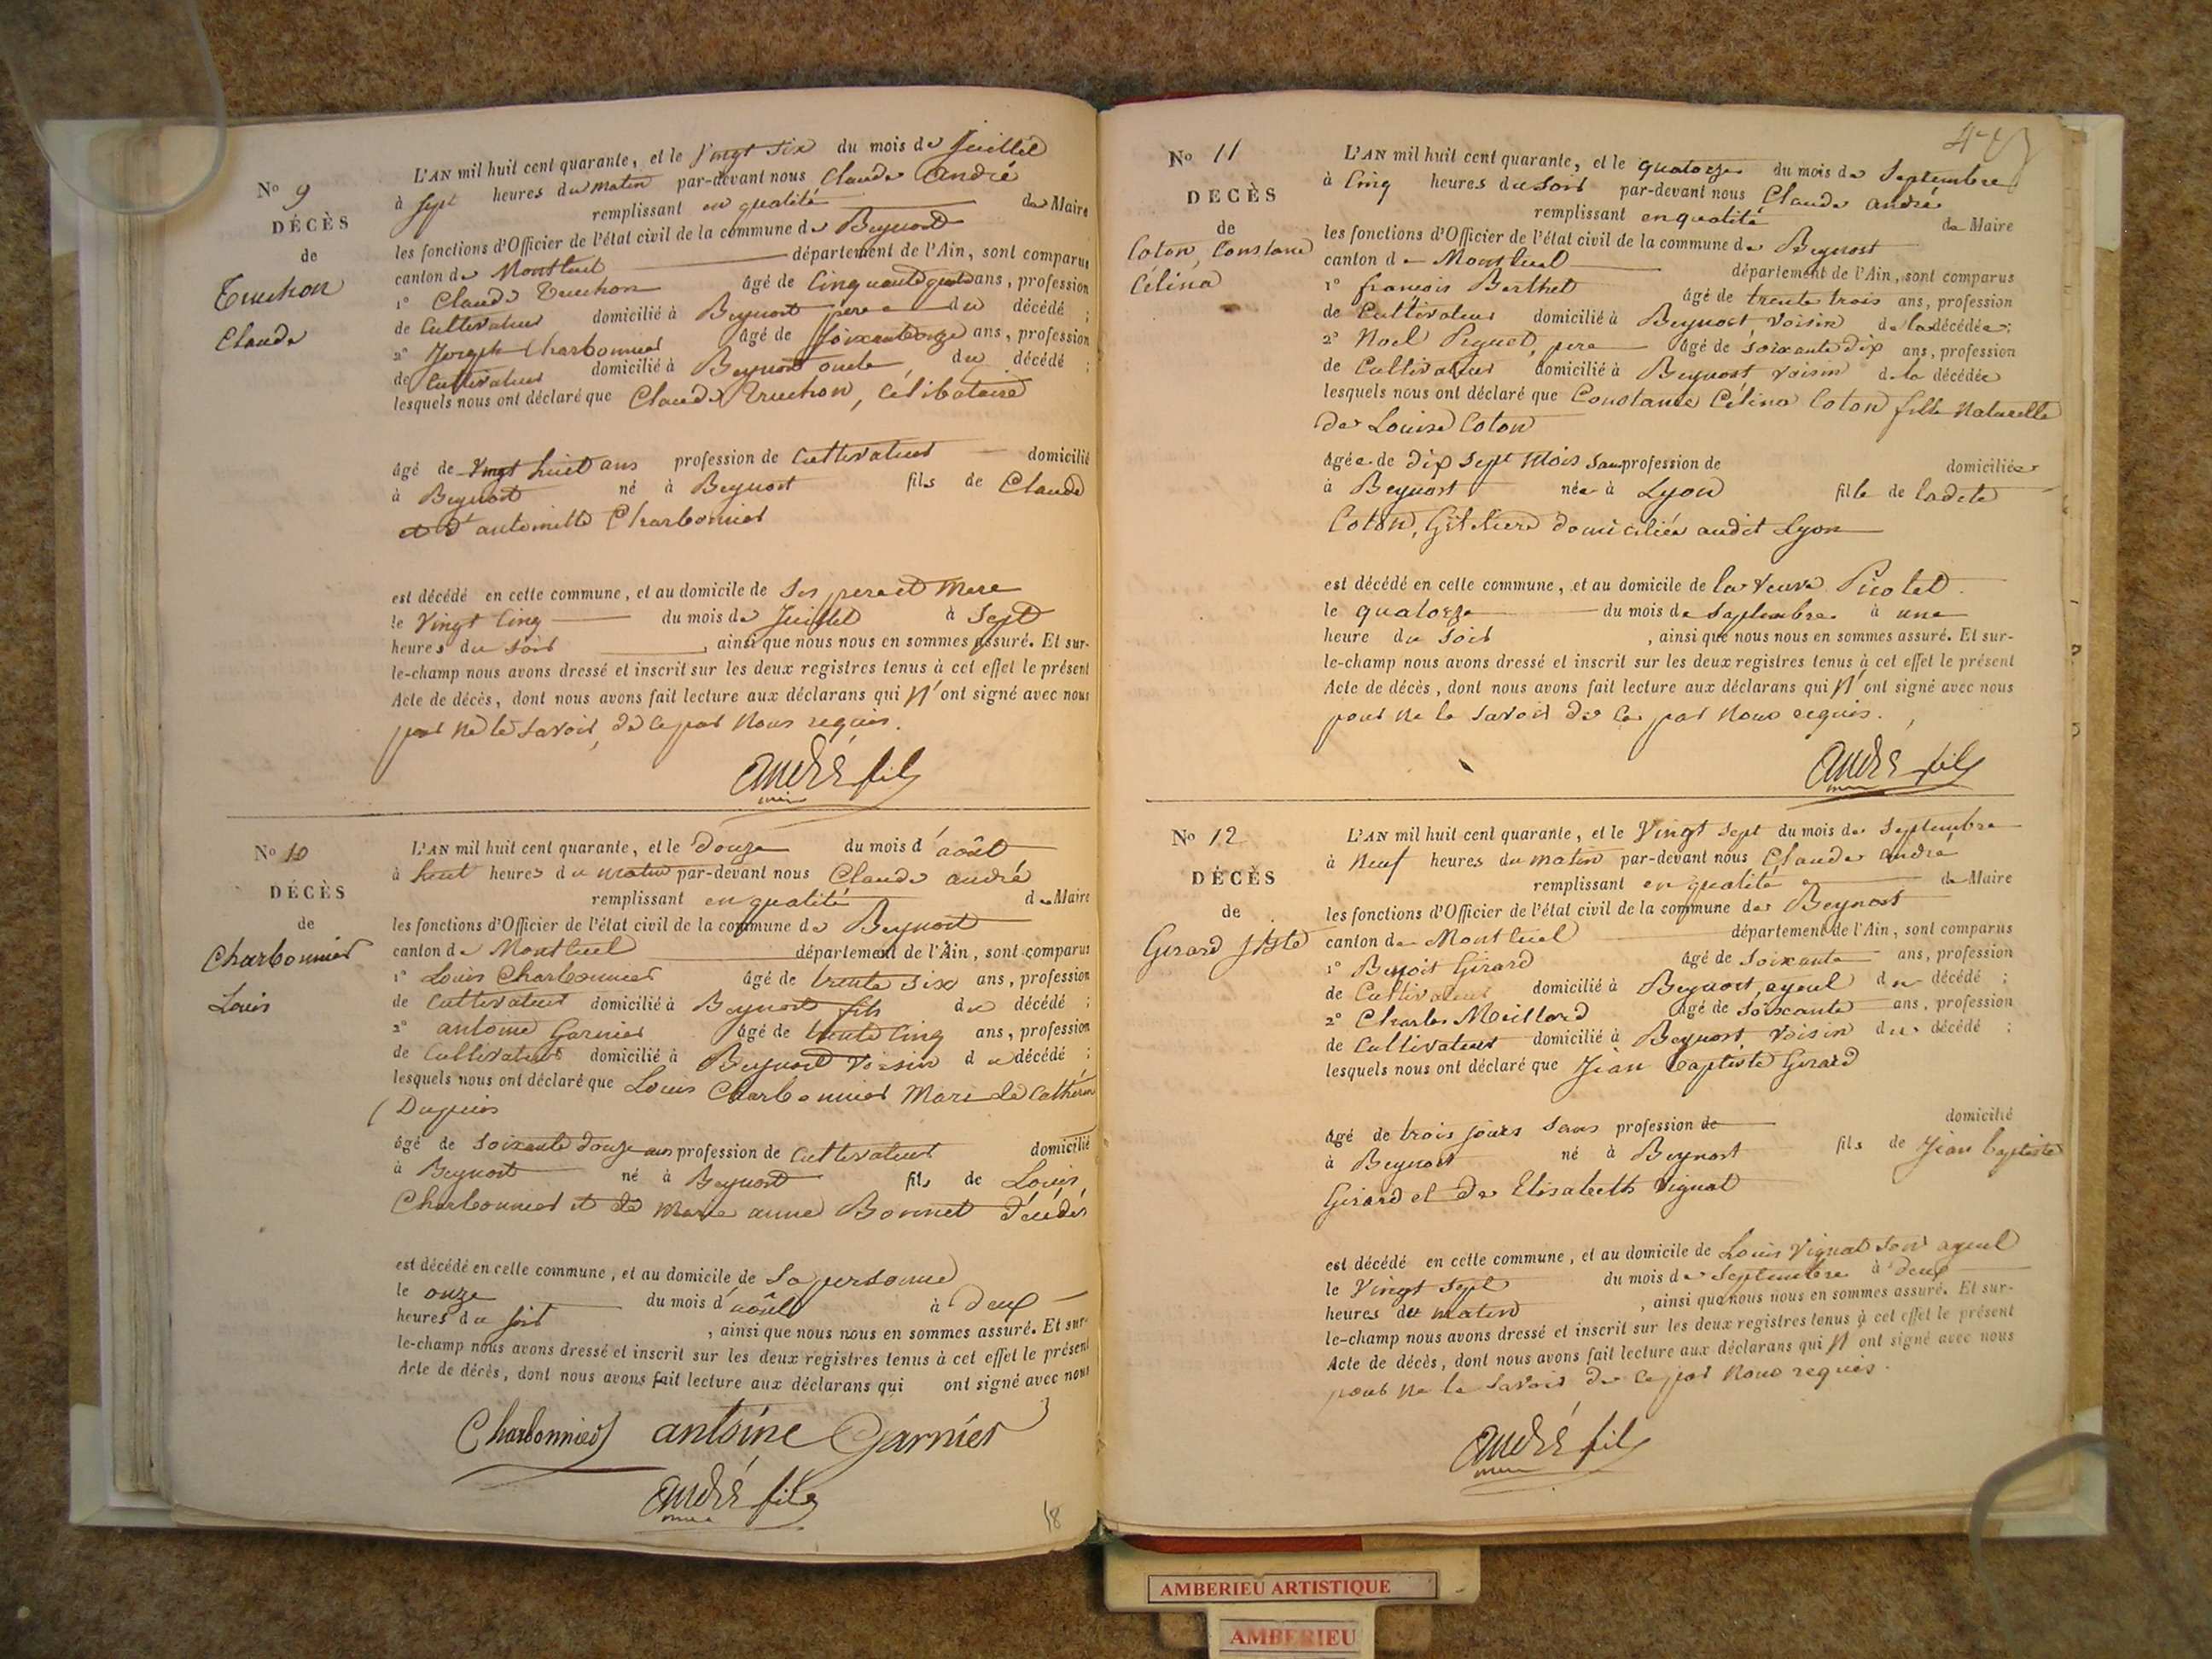 N° 9
DÉCÈS
de
Truchon
Claude
L'AN mil huit cent quarante, et le Vingt six du mois de Juillet
à sept heures du matin par-devant nous Claude André
remplissant en qualité de Maire
les fonctions d'Officier de l'état civil de la commune de Beynost
canton de Montluel département de l'Ain, sont comparus
1° Claude Truchon âgé de Cinquante quatre ans, profession
de Cultivateur domicilié à Beynost pere du décédé ;
2° Joseph Charbonnier âgé de soixante onze ans, profession
de Cultivateur domicilié à Beynost oncle du décédé ;
lesquels nous ont déclaré que Claude Truchon, Célibataire
âgé de Vingt huit ans profession de Cultivateur domicilié
à Beynost né à Beynost fils de Claude
et d'antoinette Charbonnier
est décédé en cette commune, et au domicile de Ses pere et Mere
le Vingt Cinq du mois de Juillet à Sept
heures du soir , ainsi que nous nous en sommes assuré. Et sur-
le-champ nous avons dressé et inscrit sur les deux registres tenus à cet effet le présent
Acte de décès, dont nous avons fait lecture aux déclarans qui N' ont signé avec nous
pour ne le savoir, de ce par Nous requis.
André fils
N° 10
DÉCÈS
de
Charbonnier
Louis
L'AN mil huit cent quarante, et le douze du mois d'août
à huit heures du matin par-devant nous Claude andré
remplissant en qualité de Maire
les fonctions d'Officier de l'état civil de la commune de Beynost
canton de Montluel département de l'Ain, sont comparus
1° Louis Charbonnier âgé de trente six ans, profession
de Cultivateur domicilié à Beynost fils du décédé ;
2° antoine Garnier âgé de trente Cinq ans, profession
de Cultivateur domicilié à Beynost Voisin du décédé ;
lesquels nous ont déclaré que Louis Charbonnier Mari de Catherine
Dupuis
âgé de Soixante douze ans profession de Cultivateur domicilié
à Beynost né à Beynost fils de Louis
Charbonnier et de Marie anne Bonnet décédés
est décédé en cette commune, et au domicile de Sa personne
le onze du mois d'août à Deux
heures du soir , ainsi que nous nous en sommes assuré. Et sur-
le-champ nous avons dressé et inscrit sur les deux registres tenus à cet effet le présent
Acte de décès, dont nous avons fait lecture aux déclarans qui ont signé avec nous
Charbonnier antoine Garnier
André fils
18
N° 11
DECÈS
de
Coton, Constance
Célina
L'AN mil huit cent quarante, et le quatorze du mois de Septembre
à Cinq heures du soir par-devant nous Claude andré
remplissant en qualité de Maire
les fonctions d'Officier de l'état civil de la commune de Beynost
canton de Montluel département de l'Ain, sont comparus
1° françois Berthet âgé de trente trois ans, profession
de Cultivateur domicilié à Beynost, Voisin de la décédée ;
2° Noel Piquet, pere âgé de soixante dix ans, profession
de Cultivateur domicilié à Beynost Voisin de la décédée
lesquels nous ont déclaré que Constance Célina Coton fille Naturelle
de Louise Coton
âgée de dix sept Mois sans profession de domiciliée
à Beynost née à Lyon fille de ladite
Coton, Giletiere domiciliée audit Lyon
est décédé en cette commune, et au domicile de la Veuve Picolet
le quatorze du mois de Septembre à une
heure du soir , ainsi que nous nous en sommes assuré. Et sur-
le-champ nous avons dressé et inscrit sur les deux registres tenus à cet effet le présent
Acte de décès, dont nous avons fait lecture aux déclarans qui N' ont signé avec nous
pour ne le savoir de ce par Nous requis.
André fils
N° 12
DÉCÈS
de
Girard J Bte
L'AN mil huit cent quarante, et le Vingt sept du mois de Septembre
à Neuf heures du matin par-devant nous Claude andré
remplissant en qualité de Maire
les fonctions d'Officier de l'état civil de la commune de Beynost
canton de Montluel département de l'Ain, sont comparus
1° Benoit Girard âgé de Soixante ans, profession
de Cultivateur domicilié à Beynost, ayeul du décédé ;
2° Charles Meillard âgé de Soixante ans, profession
de Cultivateur domicilié à Beynost, Voisin du décédé ;
lesquels nous ont déclaré que Jean Baptiste Girard
âgé de trois jours Sans profession de domicilié
à Beynost né à Beynost fils de Jean baptiste
Girard et de Elisabeth Vignat
est décédé en cette commune, et au domicile de Louis Vignat son ayeul
le Vingt sept du mois de Septembre à Deux
heures du matin , ainsi que nous nous en sommes assuré. Et sur-
le-champ nous avons dressé et inscrit sur les deux registres tenus à cet effet le présent
Acte de décès, dont nous avons fait lecture aux déclarans qui N' ont signé avec nous
pour ne le savoir de ce par Nous requis.
André fils
AMBERIEU ARTISTIQUE
AMBERIEU